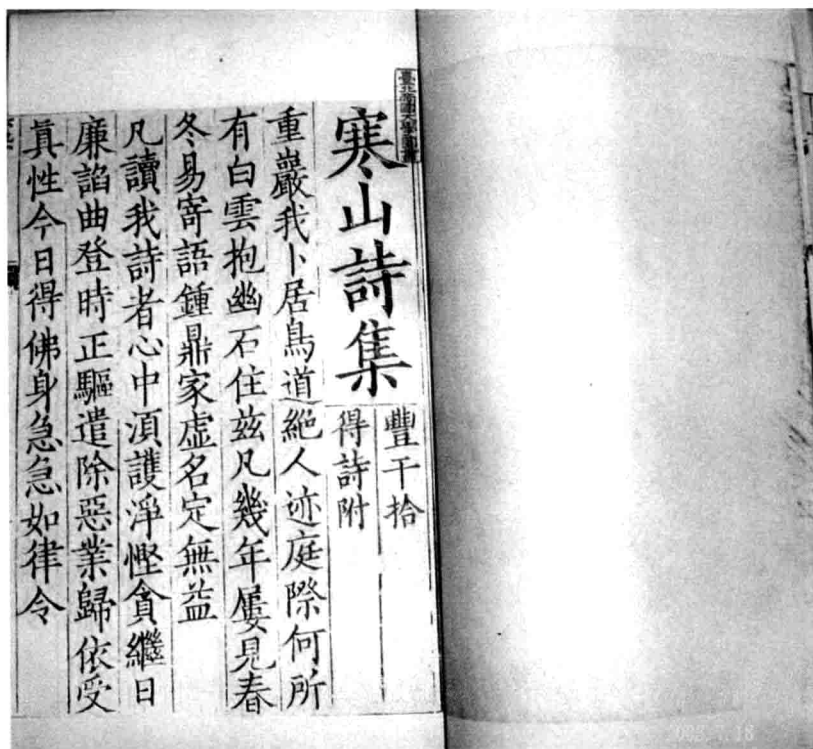 臺北帝國大學圖書
寒山詩集
豐干拾
得詩附
重巖我卜居鳥道絶人迹庭際何所
有白雲抱幽石住兹凡幾年屢見春
冬易寄語鍾鼎家虚名定無益
凡讀我詩者心中湏護淨慳貪繼日
廉諂曲登時正驅遣除惡業歸依受
真性今日得佛身急急如律令